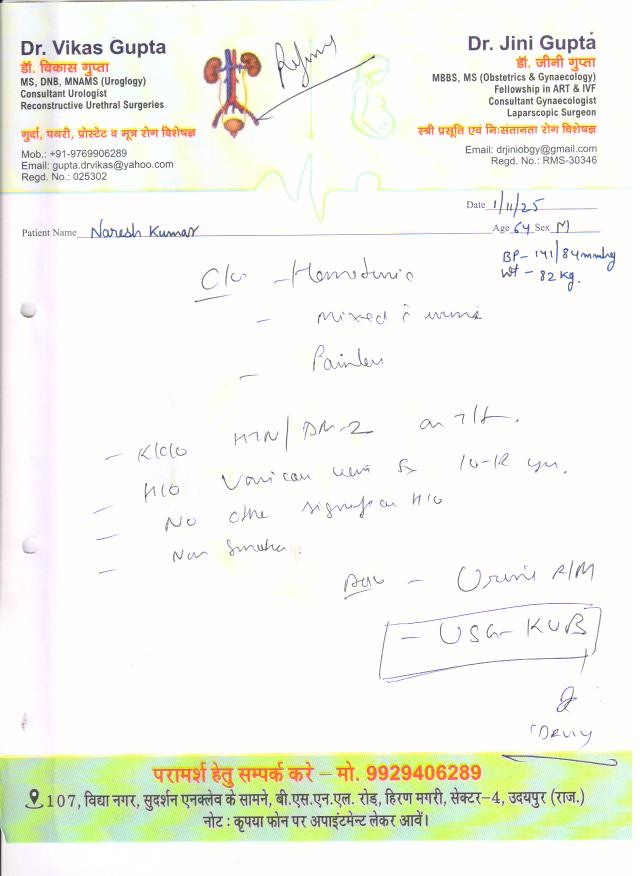 Dr. Vikas Gupta
डॉ. विकास गुप्ता
MS, DNB, MNAMS (Uroglogy)
Consultant Urologist
Reconstructive Urethral Surgeries
गुर्दा, पथरी, प्रोस्टेट व मूत्र रोग विशेषज्ञ
Mob.: +91-9769906289
Email: gupta.drvikas@yahoo.com
Regd. No.: 025302
Dr. Jini Gupta
डॉ. जीनी गुप्ता
MBBS, MS (Obstetrics & Gynaecology)
Fellowship in ART & IVF
Consultant Gynaecologist
Laparscopic Surgeon
स्त्री प्रसूति एवं निःसंतानता रोग विशेषज्ञ
Email: drjiniobgy@gmail.com
Regd. No.: RMS-30346
Date 1/11/25
Patient Name Naresh Kumar
Age 64 Sex M
BP- 141/84 mmhg
Wt - 82 kg.
C/o - Hematuria
- Mixed c̄ urine
- Painless
- K/c/o HTN/DM-2 on T/t.
- H/O 10-12 yrs.
- No other significant H/O
- Non Smoker
Adv - Urine R/M
- USG-KUB
परामर्श हेतु सम्पर्क करे – मो. 9929406289
107, विद्या नगर, सुदर्शन एनक्लेव के सामने, बी.एस.एन.एल. रोड़, हिरण मगरी, सेक्टर-4, उदयपुर (राज.)
नोट : कृपया फोन पर अपाइंटमेन्ट लेकर आवें।